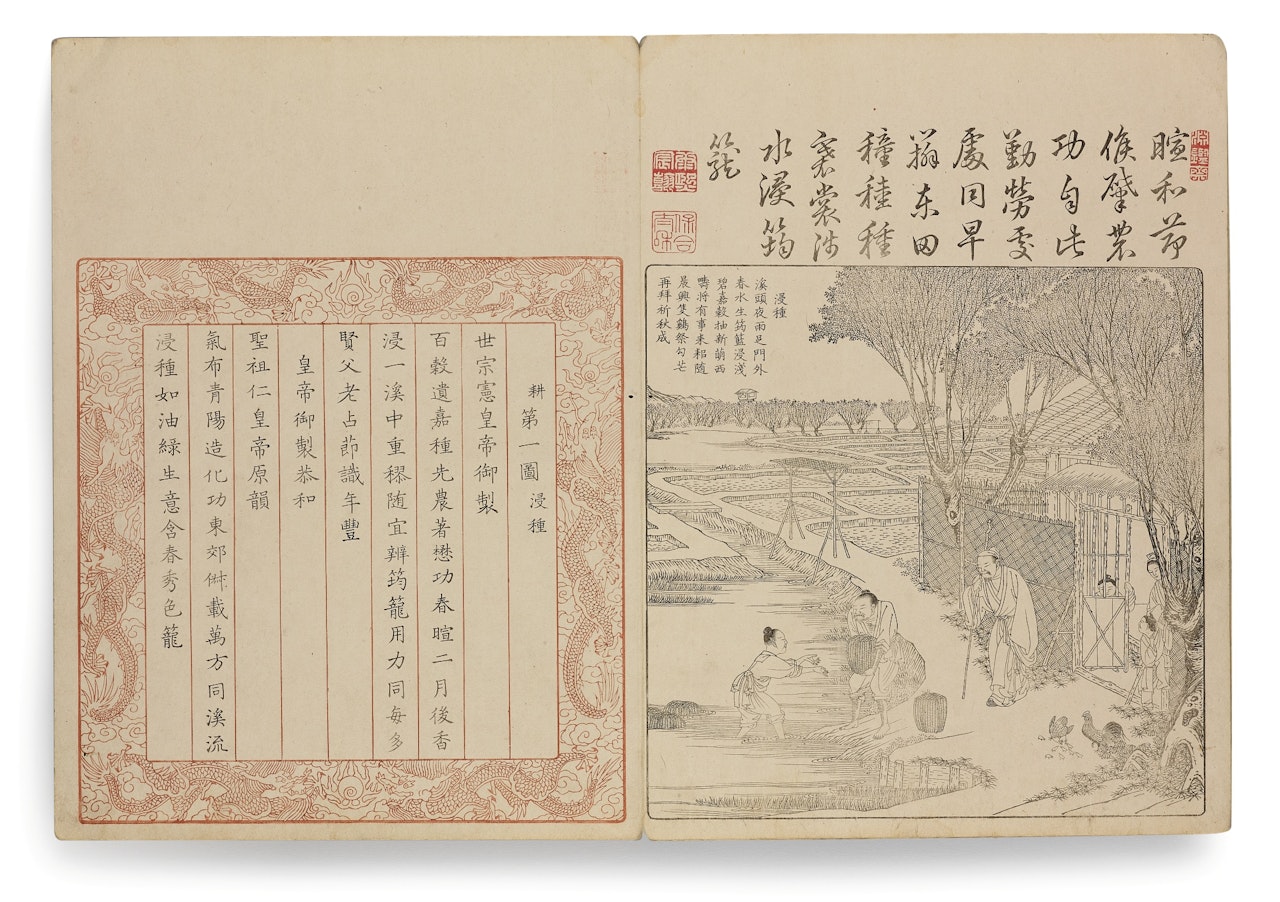 暄和節
候肇農
功自此
勤勞處
處同早
辨東田
穜稑種
褰裳涉
水浸筠
籠
康熙宸翰
保合太和
浸種
溪頭夜雨足門外
春水生筠籃浸淺
碧嘉穀抽新萌西
疇將有事耒耜隨
晨興隻鷄祭勾芒
再拜祈秋成
耕第一圖 浸種
世宗憲皇帝御製
百穀遺嘉種先農著懋功春暄二月後香
浸一溪中重穋随宜辨筠籠用力同每多
賢父老占節識年豐
皇帝御製恭和
聖祖仁皇帝原韻
氣布青陽造化功東郊俶載萬方同溪流
浸種如油綠生意含春秀色籠